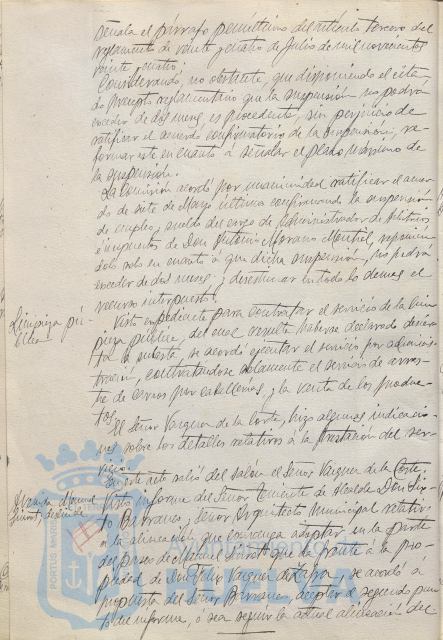 señala el párrafo penúltimo del artículo tercero del
reglamento de veinte y cuatro de Julio de mil novecientos
veinte y cuatro.
Considerando, no obstante, que disponiendo el cita-
do precepto reglamentario que la suspensión no podrá
exceder de dos meses, es procedente, sin perjuicio de
ratificar el acuerdo confirmatorio de la suspensión, re-
formar este en cuanto á señalar el plazo máximo de
la suspensión.
La Comisión acordó por unanimidad ratificar el acuer-
do de siete de Mayo último confirmando la suspensión
de empleo y sueldo del cargo de Administrador de Arbitrios
é impuestos de Don Antonio Morano Montiel,
solo en cuanto á que dicha suspensión, no podrá
exceder de dos meses y desestimar en todo lo demas el
recurso interpuesto.
Limpieza pú-
blica
Visto expediente para contratar el servicio de la lim-
pieza pública, del cual resulta haberse declarado desier-
ta la subasta, se acordó ejecutar el servicio por adminis-
tración, contratándose solamente el servicio de arras-
tre de carros por caballerías, y la venta de los produc-
tos.
El Señor Vazquez de la Corte, hizo algunas indicacio-
nes sobre los detalles relativos á la prestación del ser-
vicio.
En este acto salió del salón el Señor Vazquez de la Corte.
Visto informe del Señor Teniente de Alcalde Don
Barranco, y Señor Arquitecto Municipal relativo
á la alineación que convenga adoptar en la parte
del paseo de que dá frente á la pro-
piedad de Don Felix Vazquez de Zafra, se acordó á
propuesta del Señor Barranco, aceptar el segundo pun-
to del informe, o sea seguir la actual alineación del
PORTUS MARIS